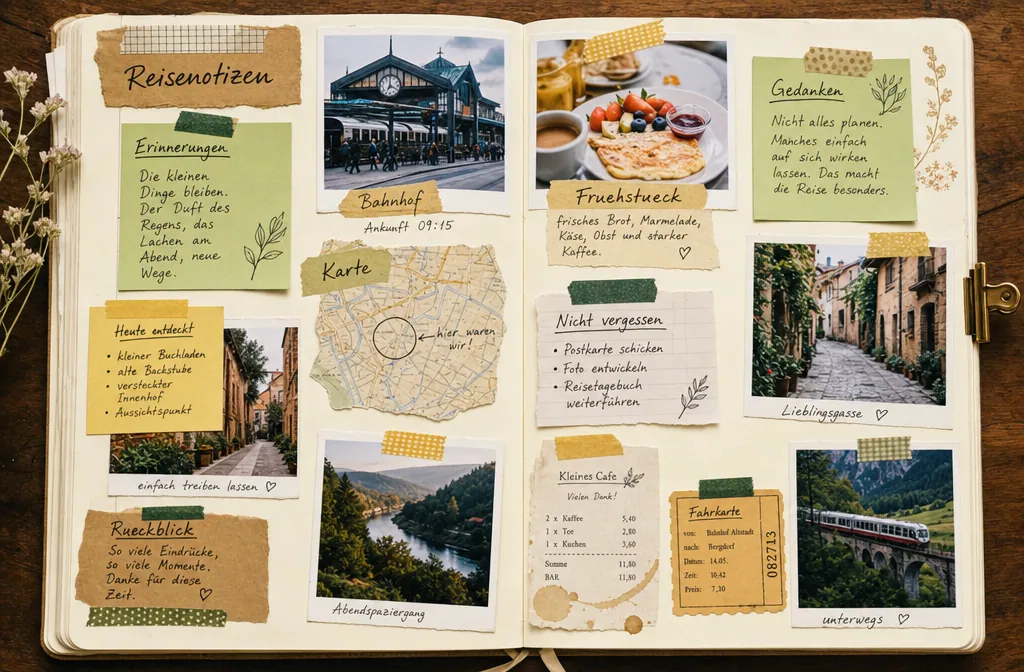 Reisenotizen
Erinnerungen
Die kleinen
Dinge bleiben.
Der Duft des
Regens, das
Lachen am
Abend, neue
Wege.
Heute entdeckt
• kleiner Buchladen
• alte Backstube
• versteckter
Innenhof
• Aussichtspunkt
einfach treiben lassen ♡
Rueckblick
So viele Eindrücke,
so viele Momente.
Danke für diese
Zeit. ♡
Bahnhof
Ankunft 09:15
Karte
hier waren
wir!
Abendspaziergang
Fruehstueck
frisches Brot, Marmelade,
Käse, Obst und starker
Kaffee. ♡
Nicht vergessen
• Postkarte schicken
• Foto entwickeln
• Reisetagebuch
weiterführen
Kleines Cafe
Vielen Dank!
2 x Kaffee 5,40
1 x Tee 2,80
1 x Kuchen 3,60
Summe 11,80
BAR 11,80
Fahrkarte
von: Bahnhof Altstadt
nach: Bergdorf
Datum: 14.05.
Zeit: 10,42
Preis: 7,30
082713
Gedanken
Nicht alles planen.
Manches einfach
auf sich wirken
lassen. Das macht
die Reise besonders.
Lieblingsgasse ♡
unterwegs ♡